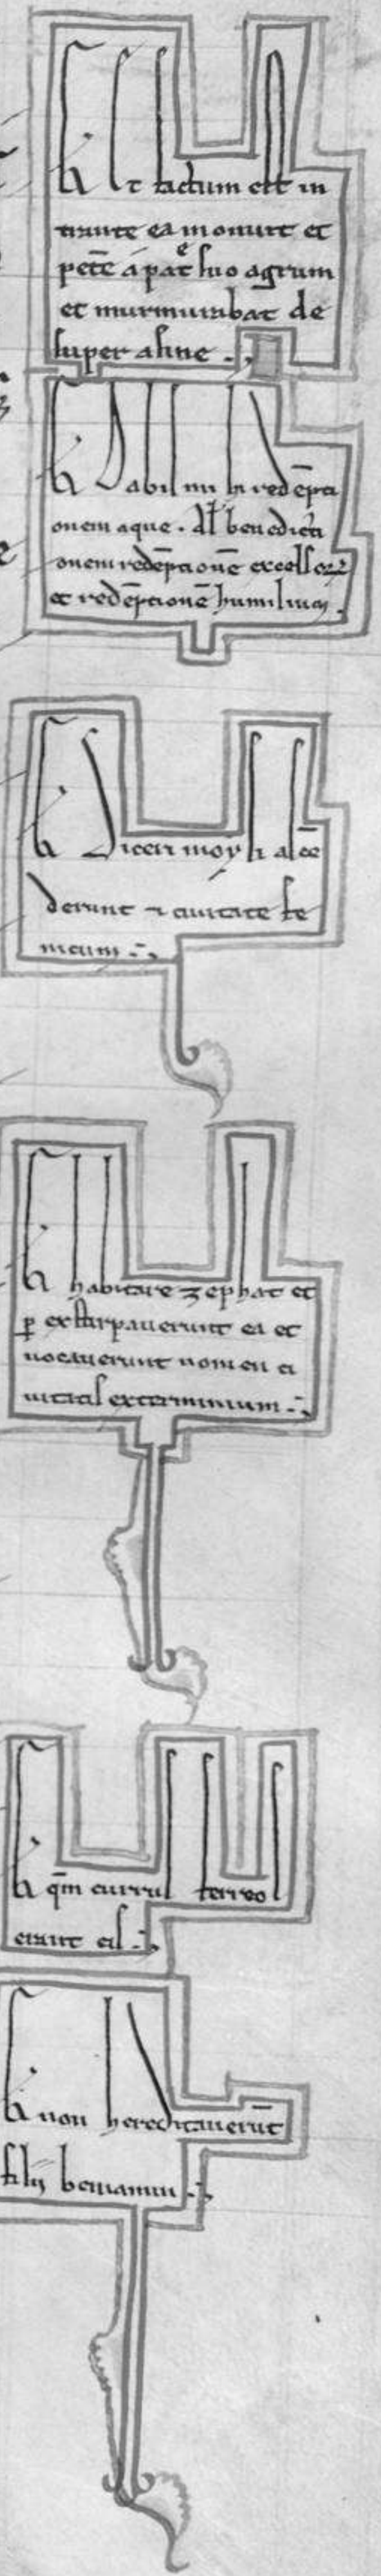 Et factum est in
trante ea monuit et
petē a patre suo agrum
et murmurabat de
super asine
Dabis mihi in redēpti
onem aque. Al' benedicti
onem redēptionē excelsorū
et redēptionē humiliūm
Diceri moysi ascē
derunt de civitate se
nicum
habitare zephat et
ꝑ exstirpaverunt ea et
vocaverunt nomen ci
vitatis exterminium
qm̄ currus ferreos
erant eis
non hereditaverūt
filij beniamin